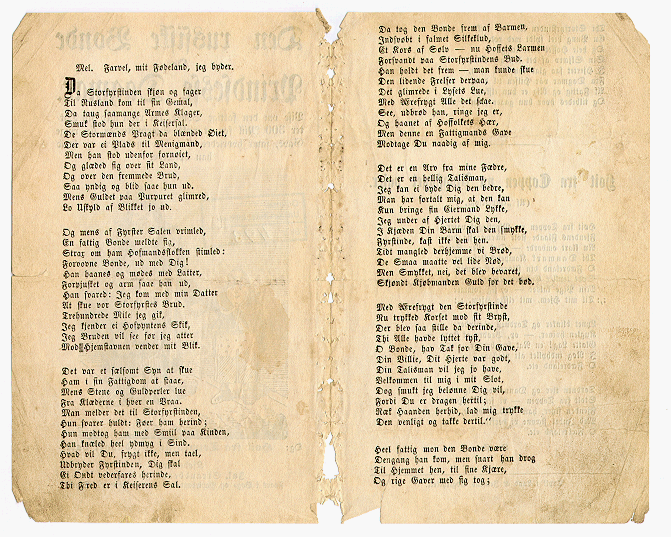 Mel. Farvel, mit Fødeland, jeg byder.
Da Storfyrstinden skjøn og fager
Til Rusland kom til sin Gemal,
Da taug saamange Armes Klager,
Smuk stod hun der i Keisersal.
De Stormænds Pragt da blænded Øiet,
Der var ei Plads til Menigmand,
Men han stod udenfor fornøiet,
Og glæded sig over sit Land,
Og over den fremmede Brud,
Saa yndig og blid saae hun ud.
Mens Guldet paa Purpuret glimred,
Lo Uskyld af Blikket jo ud.
Og mens af Fyrster Salen vrimled,
En fattig Bonde meldte sig,
Strax om ham Hofmandsflokken stimled:
Forvovne Bonde, ud med Dig!
Han haanes og mødes med Latter,
Forpjusket og arm saae han ud,
Han svared: Jeg kom med min Datter
At skue vor Storfyrstes Brud.
Trehundrede Mile jeg gik,
Jeg kjender ei Hofpyntens Skik,
Jeg Bruden vil see før jeg atter
Mod Hjemstavnen vender mit Blik.
Det var et sælsomt Syn at skue
Ham i sin Fattigdom at staae,
Mens Stene og Guldperler lue
Fra Klæderne i hver en Vraa.
Man melder det til Storfyrstinden,
Hun svarer huldt: Før ham herind;
Hun modtog ham med Smiil paa Kinden,
Han knæled heel ydmyg i Sind.
Hvad vil Du, frygt ikke, men tael,
Udbryder Fyrstinden, Dig skal
Ei Ondt vederfares herinde,
Thi Fred er i Keiserens Sal.
Da tog den Bonde frem af Barmen,
Indsvøbt i falmet Silkeklud,
Et Kors af Sølv — nu Hoffets Larmen
Forsvandt paa Storfyrstindens Bud.
Han holdt det frem — man kunde skue
Den lidende Frelser derpaa,
Det glimrede i Lysets Lue,
Med Ærefrygt Alle det saae.
See, udbrød han, ringe jeg er,
Og haanet af Hoffolkets Hær,
Men denne en Fattigmands Gave
Modtage Du naadig af mig.
Det er en Arv fra mine Fædre,
Det er en hellig Talisman,
Jeg kan ei byde Dig den bedre,
Man har fortalt mig, at den kan
Kun bringe sin Eiermand Lykke,
Jeg under af Hjertet Dig den,
I Kjæden Din Barm skal den smykke,
Fyrstinde, kast ikke den hen.
Tidt mangled derhjemme vi Brød,
De Smaa maatte vel lide Nød,
Men Smykket, nei, det blev bevaret,
Skjøndt Kjøbmanden Guld for det bød.
Med Ærefrygt den Storfyrstinde
Nu trykked Korset mod sit Bryst,
Der blev saa stille da derinde,
Thi Alle havde lyttet tyst,
O Bonde, hav Tak for Din Gave,
Din Villie, Dit Hjerte var godt,
Din Talisman vil jeg jo have,
Velkommen til mig i mit Slot,
Dog smukt jeg belønne Dig vil,
Fordi Du er dragen hertil;
Ræk Haanden herhid, lad mig trykke
Den venligt og takke dertil."
Heel fattig mon den Bonde være
Dengang han kom, men snart han drog
Til Hjemmet hen, til sine Kjære,
Og rige Gaver med sig tog;